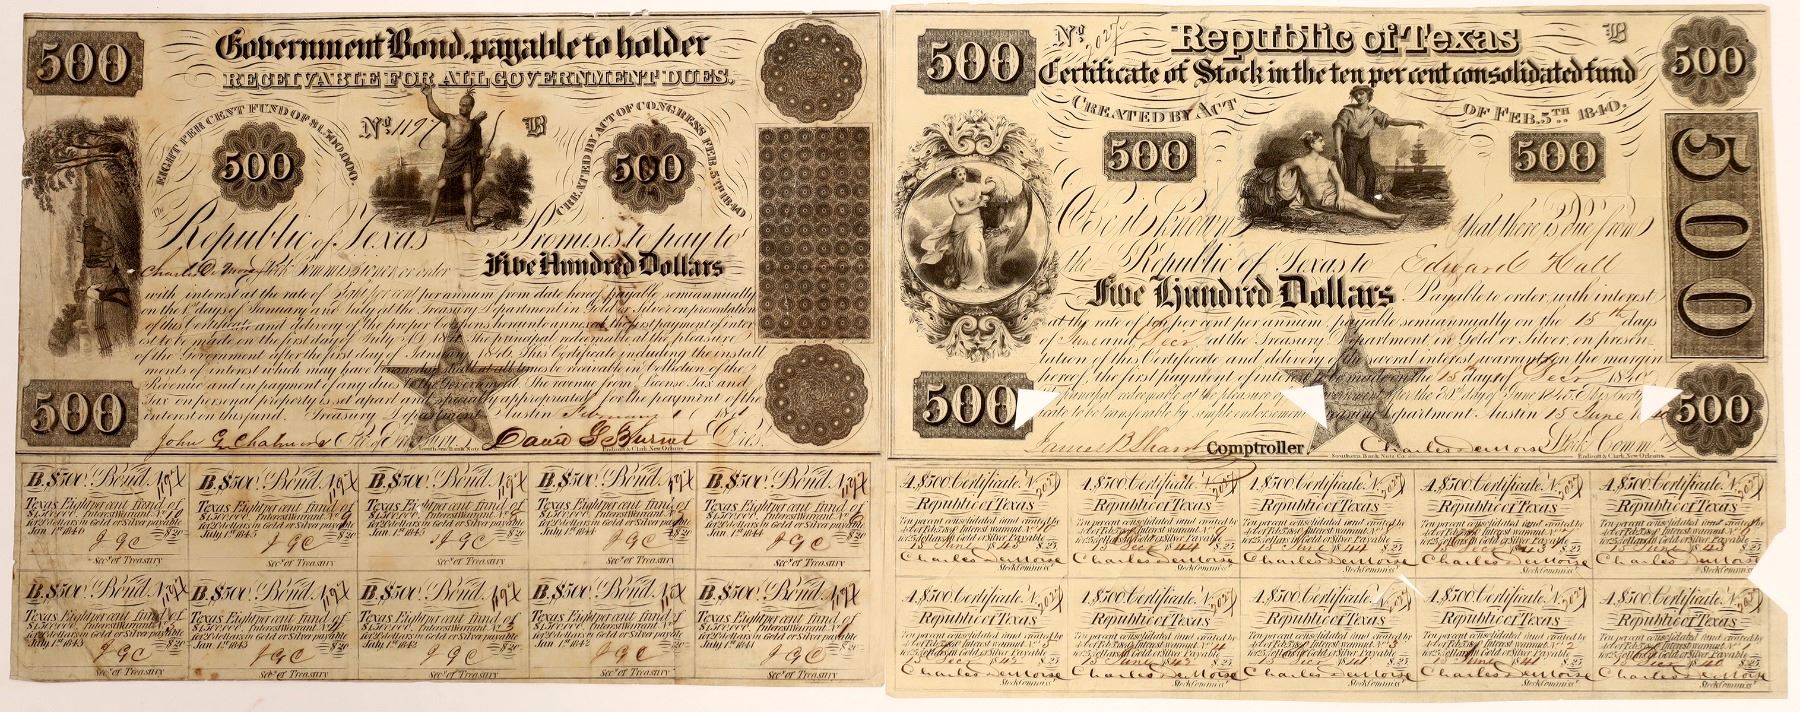 500
Government Bond, payable to holder
RECEIVABLE FOR ALL GOVERNMENT DUES.
EIGHT PER CENT FUND OF $1,500,000.
No. 1197
B
CREATED BY ACT OF CONGRESS FEB. 5TH 1840
500
500
The Republic of Texas Promises to pay to
Stock Commissioner or order Five Hundred Dollars
with interest at the rate of Eight per cent per annum from date hereof, payable semiannually
on the 1st days of January and July at the Treasury Department in Gold or Silver on presentation
of this Certificate and delivery of the proper Coupons hereunto annexed,
est to be made on the first day of July the principal redeemable at the pleasure
of the Government after the first day of January 1846. This Certificate including the install
ments of interest which may have become due shall at all times be receivable in Collection of the
Revenue and in payment of any dues to the Government. The revenue from License Tax and
Tax on personal property is set apart and specially appropriated for the payment of the
interest on this fund. Treasury Department Austin February 1
500
John G. Chalmers Sec. of Treasury David G. Burnet
Endicott & Clark, New Orleans
B, $500 Bond, No. 1197
Texas Eight per cent fund of
for 20 dollars in Gold or Silver payable
Jan 1st 1846 $20
J G C
Secy. of Treasury
B, $500 Bond, No. 1197
Texas Eight per cent fund of
for 20 dollars in Gold or Silver payable
July 1st 1845 $20
J G C
Secy. of Treasury
B, $500 Bond, No. 1197
Texas Eight per cent fund of
for 20 dollars in Gold or Silver payable
Jan 1st 1845 $20
J G C
Secy. of Treasury
B, $500 Bond, No. 1197
Texas Eight per cent fund of
for 20 dollars in Gold or Silver payable
July 1st 1844 $20
J G C
Secy. of Treasury
B, $500 Bond, No. 1197
Texas Eight per cent fund of
for 20 dollars in Gold or Silver payable
Jan 1st 1844 $20
J G C
Secy. of Treasury
B, $500 Bond, No. 1197
Texas Eight per cent fund of
for 20 dollars in Gold or Silver payable
July 1st 1843 $20
J G C
Secy. of Treasury
B, $500 Bond, No. 1197
Texas Eight per cent fund of
for 20 dollars in Gold or Silver payable
Jan 1st 1843 $20
J G C
Secy. of Treasury
B, $500 Bond, No. 1197
Texas Eight per cent fund of
for 20 dollars in Gold or Silver payable
July 1st 1842 $20
J G C
Secy. of Treasury
B, $500 Bond, No. 1197
Texas Eight per cent fund of
for 20 dollars in Gold or Silver payable
Jan 1st 1842 $20
J G C
Secy. of Treasury
B, $500 Bond, No. 1197
Texas Eight per cent fund of
for 20 dollars in Gold or Silver payable
July 1st 1841 $20
J G C
Secy. of Treasury
500
No. 2027
Republic of Texas
B
500
Certificate of Stock in the ten per cent consolidated fund
CREATED BY ACT OF FEB. 5TH 1840.
500
500
500
Be it Known that there is Due from
the Republic of Texas to Edward Hall
Five Hundred Dollars Payable to order, with interest
at the rate of ten per cent per annum, payable semiannually on the 15th days
of June and Decr. at the Treasury Department, in Gold or Silver, on presen-
tation of this Certificate and delivery of the several interest warrants on the margin
hereof, the first payment of interest to be made on the 15th day of Decr 1840
Principal redeemable at the pleasure
cate to be transferable by simple endorsement. Treasury Department Austin 15 June 1840
500
500
James B Shaw Comptroller. Charles DeMorse Stock Commr.
Southern Bank Note Co. Endicott & Clark, New Orleans.
A, $500 Certificate. No. 2027
Republic of Texas
Ten per cent consolidated fund created by
Act of Feb. 5th 1840 Interest warrant No. 10
for 25 dollars in Gold or Silver Payable
15 June 1845 $25
Charles DeMorse
Stock Commissr.
A, $500 Certificate. No. 2027
Republic of Texas
Ten per cent consolidated fund created by
for 25 dollars in Gold or Silver Payable
15 Decr 1844 $25
Charles DeMorse
Stock Commissr.
A, $500 Certificate. No. 2027
Republic of Texas
Ten per cent consolidated fund created by
for 25 dollars in Gold or Silver Payable
15 June 1844 $25
Charles DeMorse
Stock Commissr.
A, $500 Certificate. No. 2027
Republic of Texas
Ten per cent consolidated fund created by
for 25 dollars in Gold or Silver Payable
15 Decr 1843 $25
Charles DeMorse
Stock Commissr.
A, $500 Certificate. No. 2027
Republic of Texas
Ten per cent consolidated fund created by
for 25 dollars in Gold or Silver Payable
15 June 1843 $25
Charles DeMorse
Stock Commissr.
A, $500 Certificate. No. 2027
Republic of Texas
Ten per cent consolidated fund created by
for 25 dollars in Gold or Silver Payable
15 Decr 1842 $25
Charles DeMorse
Stock Commissr.
A, $500 Certificate. No. 2027
Republic of Texas
Ten per cent consolidated fund created by
for 25 dollars in Gold or Silver Payable
15 June 1842 $25
Charles DeMorse
Stock Commissr.
A, $500 Certificate. No. 2027
Republic of Texas
Ten per cent consolidated fund created by
for 25 dollars in Gold or Silver Payable
15 Decr 1841 $25
Charles DeMorse
Stock Commissr.
A, $500 Certificate. No. 2027
Republic of Texas
Ten per cent consolidated fund created by
for 25 dollars in Gold or Silver Payable
15 June 1841 $25
Charles DeMorse
Stock Commissr.
A, $500 Certificate. No. 2027
Republic of Texas
Ten per cent consolidated fund created by
for 25 dollars in Gold or Silver Payable
15 Decr 1840 $25
Charles DeMorse
Stock Commissr.